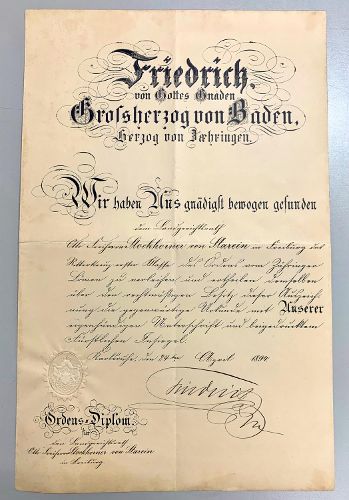 Friedrich,
von Gottes Gnaden
Grossherzog von Baden,
Herzog von Zæhringen.
Wir haben Uns gnädigst bewogen gefunden
dem Landgerichtsrath
Otto Freiherrn Stockhorner von Starein in Freiburg das
Ritterkreuz erster Klasse des Ordens vom Zähringer
Löwen zu verleihen und ertheilen demselben
über den rechtmäßigen Besitz dieser Auszeich-
nung die gegenwärtige Urkunde mit Unserer
eigenhändigen Unterschrift und beigedrucktem
Fürstlichen Insiegel.
Karlsruhe, den 24ten April
Friedrich
Ordens-Diplom
für
den Landgerichtsrath
Otto Freiherrn Stockhorner von Starein
in Freiburg